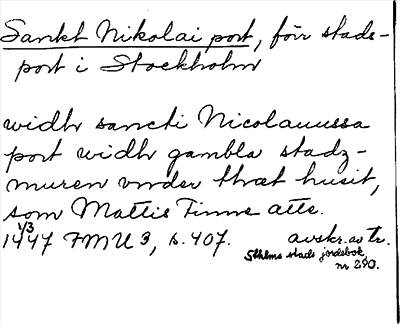 Sankt Nikolai port, förr stads-
port i Stockholm
widh sancti Nicolauussa
port widh gambla stadz-
muren vnder thæt husit,
som Mattis Finne atte.
1/3
1447 FMU 3, s. 407. avskr. av tr.
Sthlms stads jordebok
nr 280.